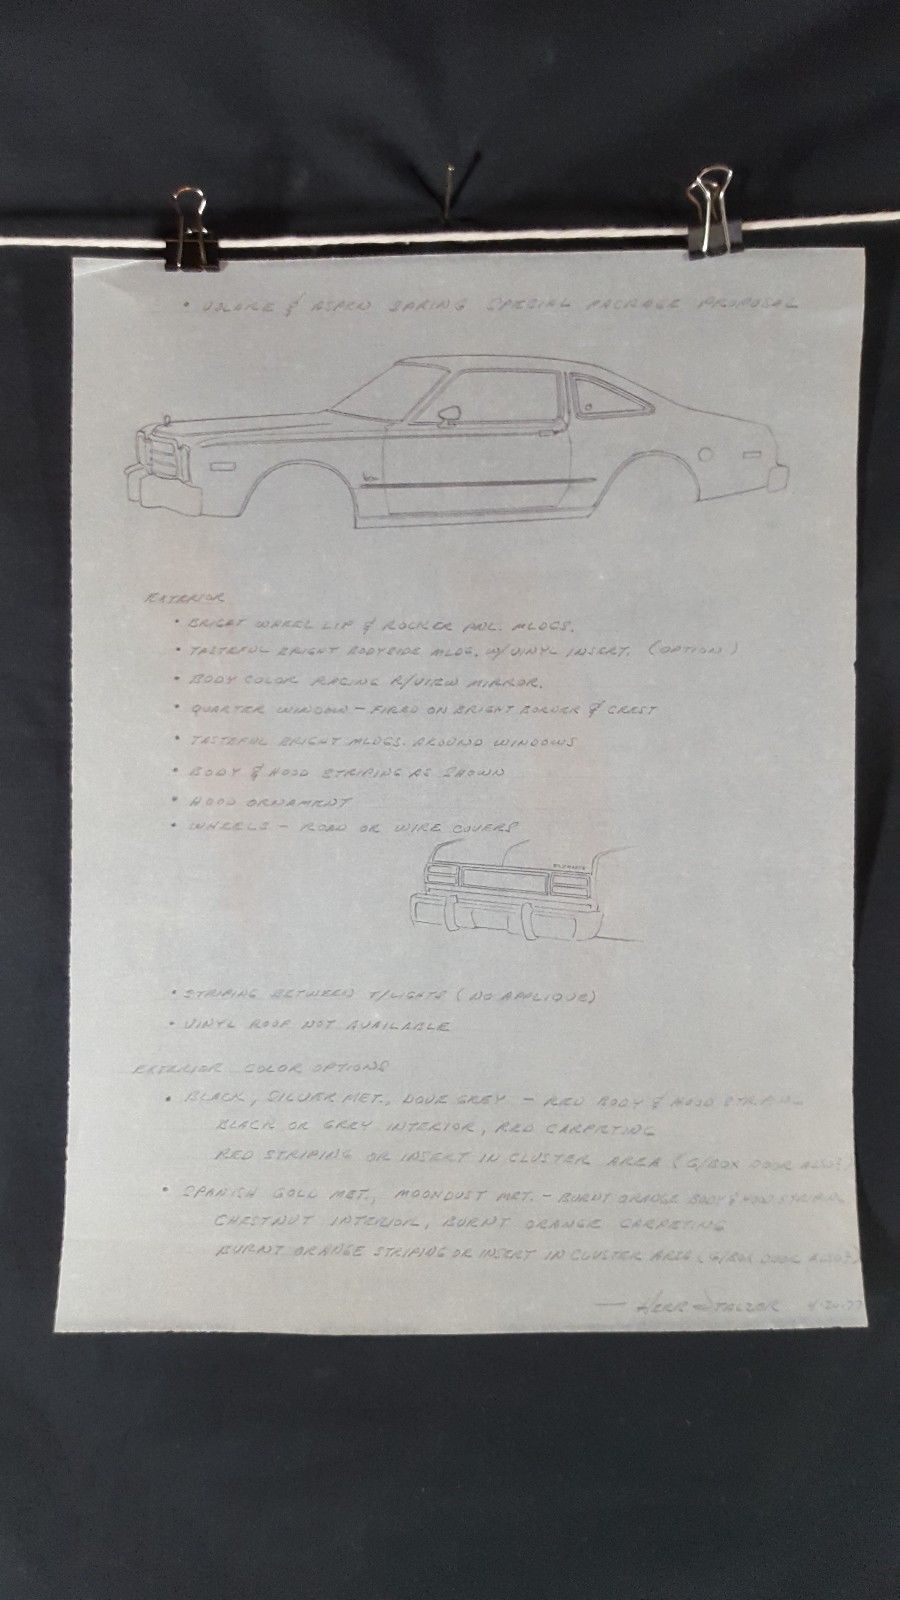 • VOLARE & ASPEN SPRING SPECIAL PACKAGE PROPOSAL
EXTERIOR
• BRIGHT WHEEL LIP & ROCKER PNL. MLDGS.
• TASTEFUL BRIGHT BODYSIDE MLDG. W/VINYL INSERT. (OPTION)
• BODY COLOR RACING R/VIEW MIRROR.
• QUARTER WINDOW - FIRED ON BRIGHT BORDER & CREST
• TASTEFUL BRIGHT MLDGS. AROUND WINDOWS
• BODY & HOOD STRIPING AS SHOWN
• HOOD ORNAMENT
• WHEELS - ROAD OR WIRE COVERS
PLYMOUTH
• STRIPING BETWEEN T/LIGHTS (NO APPLIQUE)
• VINYL ROOF NOT AVAILABLE
EXTERIOR COLOR OPTIONS
• BLACK, SILVER MET., DOVE GREY - RED BODY & HOOD STRIPING
BLACK OR GREY INTERIOR, RED CARPETING
RED STRIPING OR INSERT IN CLUSTER AREA (G/BOX DOOR ALSO?)
• SPANISH GOLD MET., MOONDUST MET. - BURNT ORANGE BODY & HOOD STRIPING
CHESTNUT INTERIOR, BURNT ORANGE CARPETING
BURNT ORANGE STRIPING OR INSERT IN CLUSTER AREA (G/BOX DOOR ALSO?)
— HERR STALZER 4-20-77